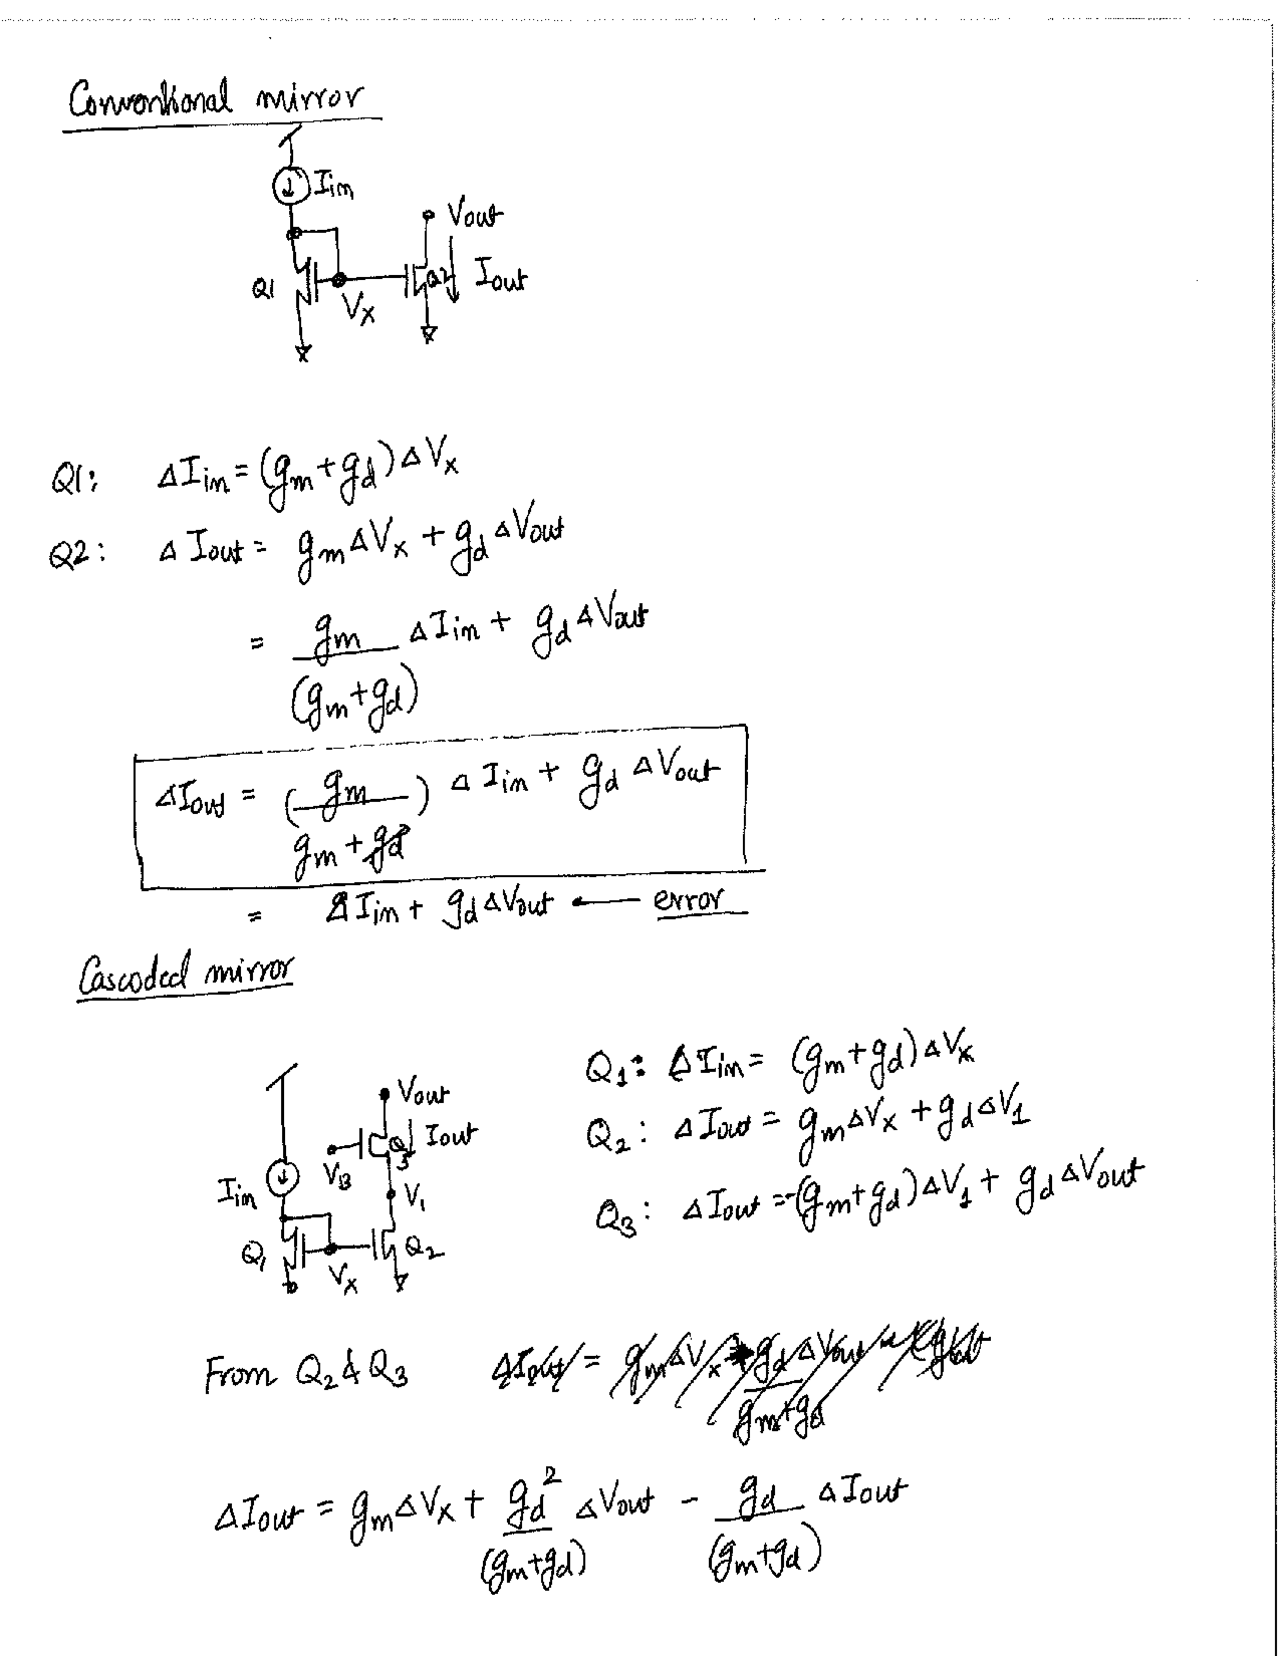 Conventional mirror
Iin
Vout
Q1
Q2
Iout
Vx
Q1: ΔIin = (gm+gd)ΔVx
Q2: ΔIout = gmΔVx + gdΔVout
= gm/(gm+gd) ΔIin + gdΔVout
ΔIout = (gm/gm+gd) ΔIin + gdΔVout
= ΔIin + gdΔVout ← error
Cascoded mirror
Vout
Q3
Iout
VB
Iin
V1
Q1
Q2
Vx
Q1: ΔIin = (gm+gd)ΔVx
Q2: ΔIout = gmΔVx + gdΔV1
Q3: ΔIout = -(gm+gd)ΔV1 + gdΔVout
From Q2 & Q3
ΔIout = gmΔVx + gd²/(gm+gd) ΔVout - gd/(gm+gd) ΔIout